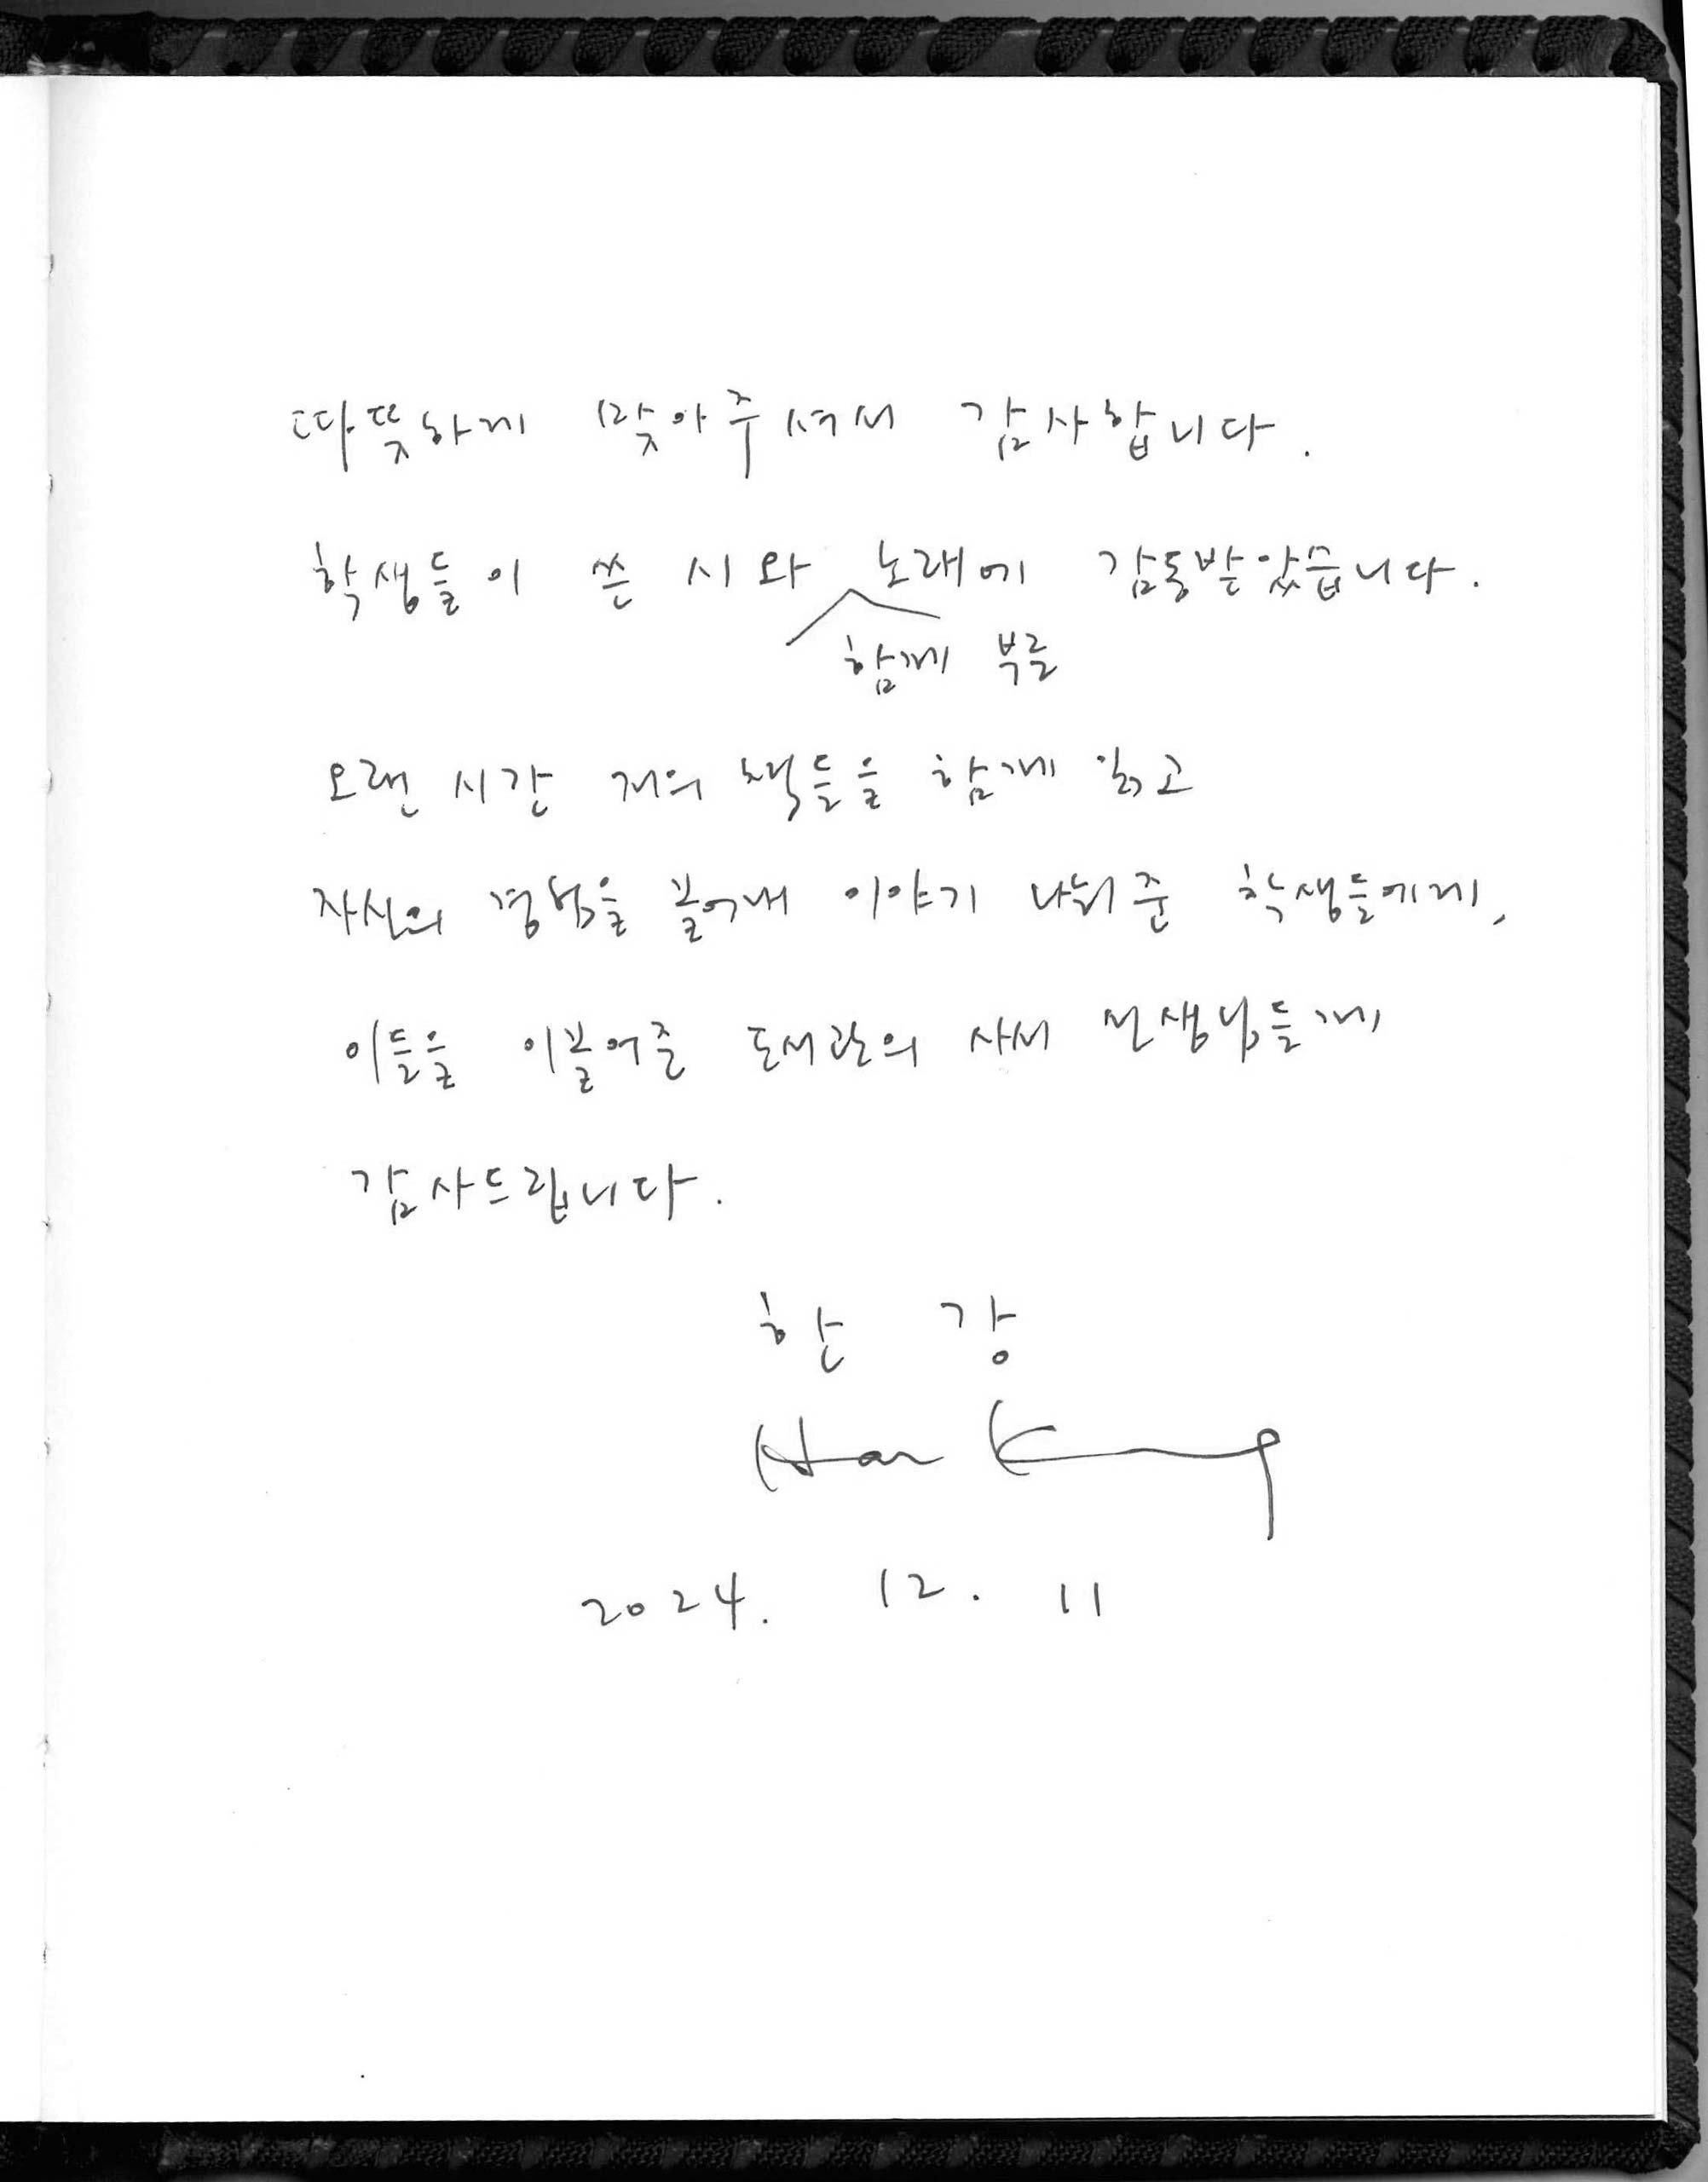 따뜻하게 맞아주셔서 감사합니다.
학생들이 쓴 시와 노래에 감동받았습니다.
함께 부른
오랜 시간 저의 책들을 함께 읽고
자신의 경험을 풀어내 이야기 나눠준 학생들에게,
이들을 이끌어준 도서관의 사서 선생님들께
감사드립니다.
한 강
Han Kang
2024. 12. 11